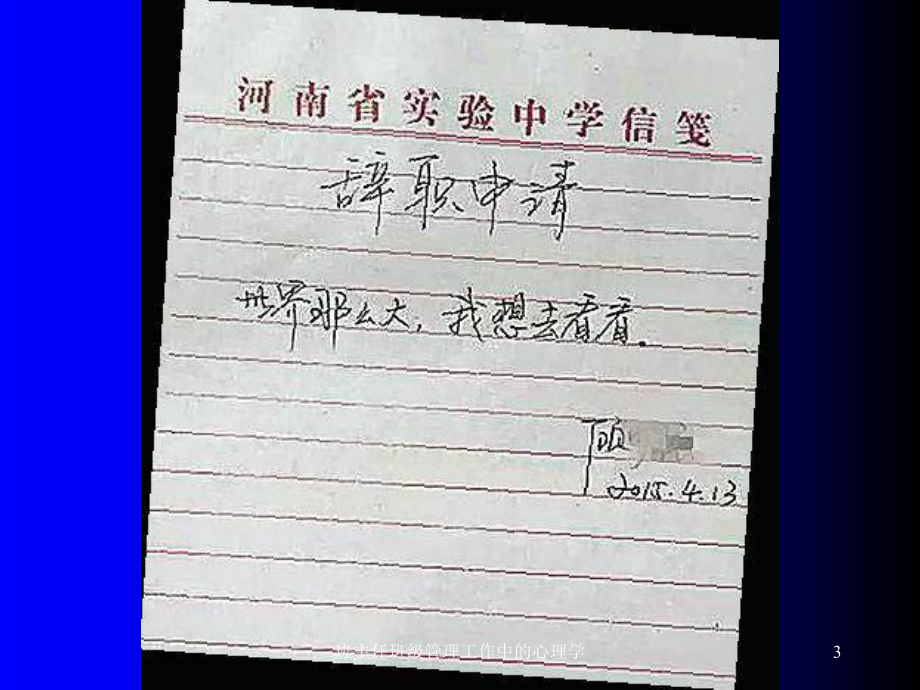 河南省实验中学信笺
辞职申请
世界那么大，我想去看看。
顾
2015.4.13
班主任班级管理工作中的心理学
3